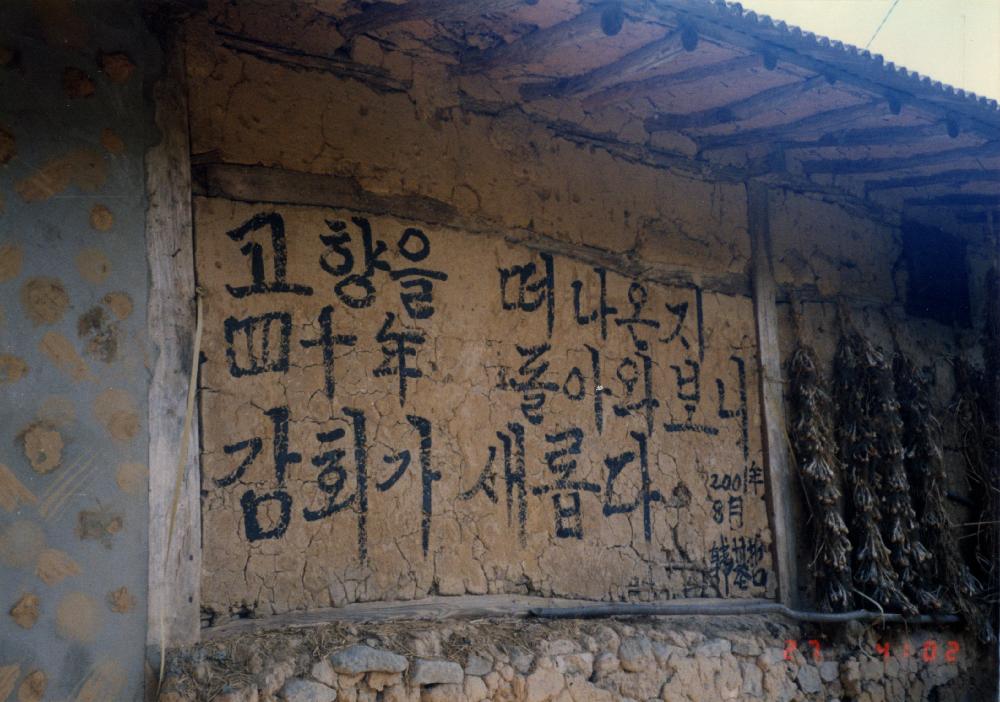 고향을 떠나온지
四十年 돌아와보니
감회가 새롭다
2001年
8月
韓
27 4:02